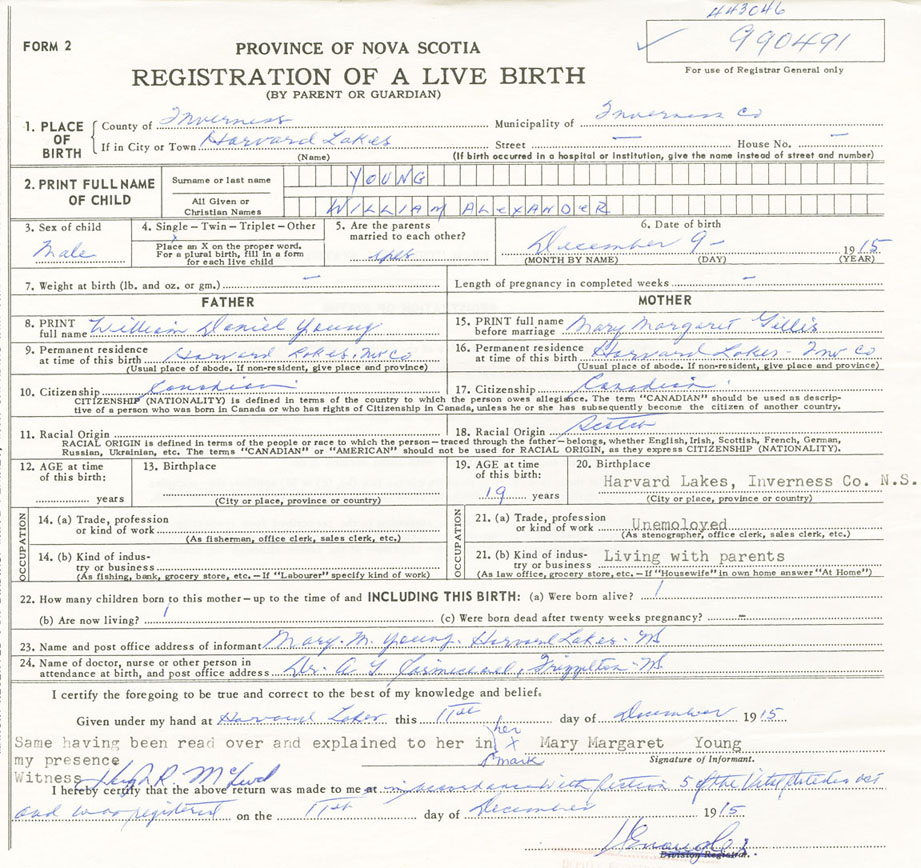 443046
990491
FORM 2
PROVINCE OF NOVA SCOTIA
For use of Registrar General only
REGISTRATION OF A LIVE BIRTH
(BY PARENT OR GUARDIAN)
1. PLACE OF BIRTH
County of Inverness Municipality of Inverness Co
If in City or Town Harvard Lakes Street — House No. —
(Name) (If birth occurred in a hospital or institution, give the name instead of street and number)
2. PRINT FULL NAME OF CHILD
Surname or last name YOUNG
All Given or Christian Names WILLIAM ALEXANDER
3. Sex of child Male
4. Single – Twin – Triplet – Other
Place an X on the proper word. For a plural birth, fill in a form for each live child
5. Are the parents married to each other? yes
6. Date of birth
December 9 – 1915
(MONTH BY NAME) (DAY) (YEAR)
7. Weight at birth (lb. and oz. or gm.) – Length of pregnancy in completed weeks –
FATHER
8. PRINT full name William Daniel Young
9. Permanent residence at time of this birth Harvard Lakes, Inv Co
(Usual place of abode. If non-resident, give place and province)
MOTHER
15. PRINT full name before marriage Mary Margaret Gillis
16. Permanent residence at time of this birth Harvard Lakes – Inv Co
(Usual place of abode. If non-resident, give place and province)
10. Citizenship Canadian 17. Citizenship Canadian
CITIZENSHIP (NATIONALITY) is defined in terms of the country to which the person owes allegiance. The term "CANADIAN" should be used as descrip-
tive of a person who was born in Canada or who has rights of Citizenship in Canada, unless he or she has subsequently become the citizen of another country.
11. Racial Origin 18. Racial Origin
RACIAL ORIGIN is defined in terms of the people or race to which the person – traced through the father – belongs, whether English, Irish, Scottish, French, German,
Russian, Ukrainian, etc. The terms "CANADIAN" or "AMERICAN" should not be used for RACIAL ORIGIN, as they express CITIZENSHIP (NATIONALITY).
12. AGE at time of this birth: years
13. Birthplace
(City or place, province or country)
19. AGE at time of this birth: 19 years
20. Birthplace
Harvard Lakes, Inverness Co. N.S.
(City or place, province or country)
OCCUPATION
14. (a) Trade, profession or kind of work
(As fisherman, office clerk, sales clerk, etc.)
14. (b) Kind of indus-
try or business
(As fishing, bank, grocery store, etc. – If "Labourer" specify kind of work)
OCCUPATION
21. (a) Trade, profession or kind of work Unemoloyed
(As stenographer, office clerk, sales clerk, etc.)
21. (b) Kind of indus-
try or business Living with parents
(As law office, grocery store, etc. – If "Housewife" in own home answer "At Home")
22. How many children born to this mother – up to the time of and INCLUDING THIS BIRTH: (a) Were born alive? 1
(b) Are now living? 1 (c) Were born dead after twenty weeks pregnancy? –
23. Name and post office address of informant Mary M. Young. Harvard Lakes NS
24. Name of doctor, nurse or other person in
attendance at birth, and post office address Dr. A
I certify the foregoing to be true and correct to the best of my knowledge and belief.
Given under my hand at Harvard Lakes this 11th day of December 1915
Same having been read over and explained to her in her X mark Mary Margaret Young
my presence Signature of Informant.
Witness Hugh R. McLeod
I hereby certify that the above return was made to me at in accordance with Section 5 of the Vital Statistics act
and was registered on the 11th day of December 1915
Division Registrar.